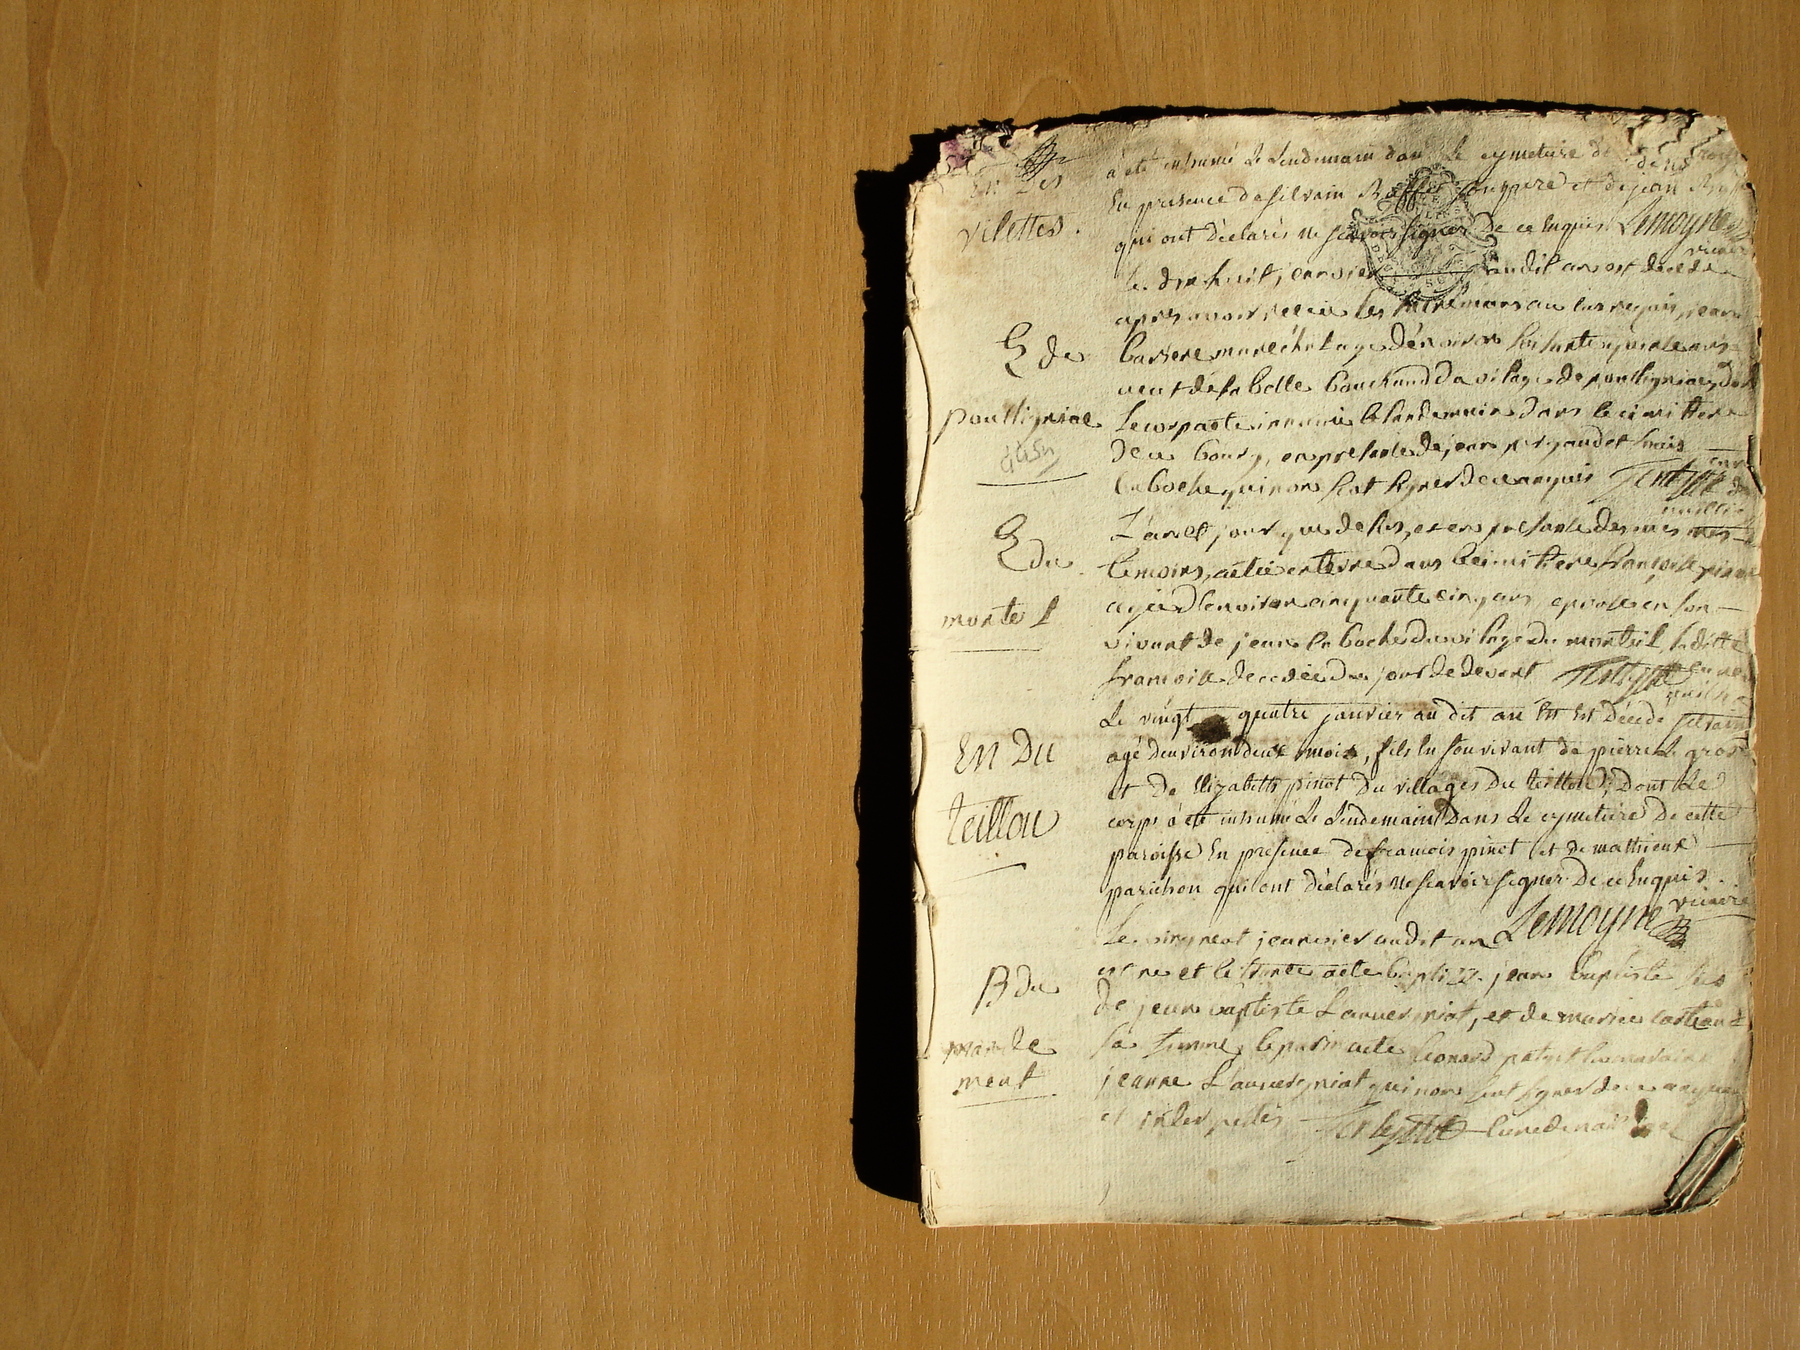 En Les
vilettes.
à eté inhumé Le Lendemain dans Le cymetiere de
En presence de silvain et de jean
qui ont déclarés ne scavoir signer De ce Enquis Lemoyne
vicaire
le dix huit janvier audit an est decede
apres avoir recue les sacremans au cas requis, jean
E de
pouttigniac
marechal age d'environ soisante quatre ans
veuf de isabelle bouchaud du vilage de pouttigniac, don
Le corps a ete innumé le landemain dans le cimittere
de ce bourg, en presance de jean pergaudet
laboche qui nont scut signer de ce anquis
curé de
E du
monteil
L'an et jour que desus, et en presance des mes
temoins, a etée enterré dans le cimittiere francoise
agée d'environ cinquante cinq ans epouse en son
vivant de jean laboche du vilage du monteil, laditte
francoise decedée du jour de devant
En Du
teillou
Le vingt quatre janvier au dit an Est Décédé silvain
agé d'environ deux mois, fils En son vivant de pierre Le gros
et De Elizabeth pinot Du villages Du teillou, Dont Le
corps à eté inhumé Le Lendemain Dans Le cymetiere De cette
paroisse En presence de francois pinot et de mathieux
parichon qui ont déclarés ne scavoir signer De ce Enquis.
Lemoyne vicaire
B du
mande
ment
Le vingt neuf janvier audit an
est ne et le trante a ete baptizé jean baptiste fils
de jean baptiste Lauvergniat, et de marie
sa femme, le parin a ete leonard la maraine
jeanne Lauvergniat qui nont scut signer de ce anquis
et interpelés curé de